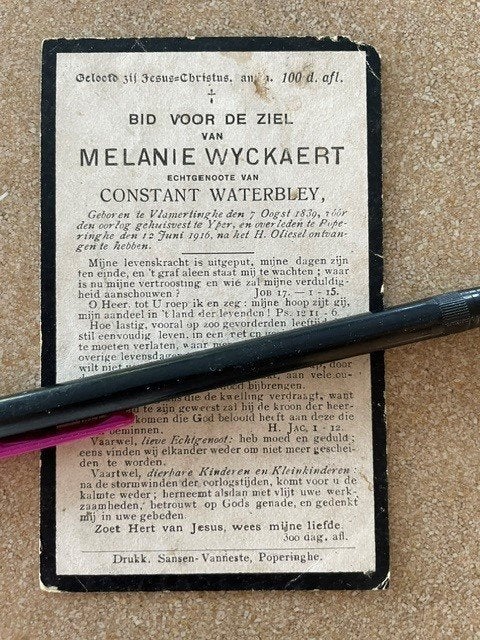 Geloofd zij Jesus-Christus. 100 d. afl.
BID VOOR DE ZIEL
VAN
MELANIE WYCKAERT
ECHTGENOOTE VAN
CONSTANT WATERBLEY,
Geboren te Vlamertinghe den 7 Oogst 1839, voor
den oorlog gehuisvest te Yper, en overleden te Pope-
ringhe den 12 Juni 1916, na het H. Oliesel ontvan-
gen te hebben.
Mijne levenskracht is uitgeput, mijne dagen zijn
ten einde, en 't graf alleen staat mij te wachten ; waar
is nu mijne vertroosting en wie zal mijne verduldig-
heid aanschouwen ? JOB 17. — 1 - 15.
O Heer, tot U roep ik en zeg : mijne hoop zijt gij,
mijn aandeel in 't land der levenden ! Ps.
Hoe lastig, vooral op zoo gevorderden leeftijd
stil eenvoudig leven, in een ret en
te moeten verlaten, waar men
overige levensdagen
wilt niet
dekt, aan vele
goed bijbrengen.
die de kwelling verdraagt, want
te zijn geweest zal hij de kroon der heer-
komen die God beloofd heeft aan deze die
beminnen. H. JAC, 1 - 12.
Vaarwel, lieve Echtgenoot: heb moed en geduld;
eens vinden wij elkander weder om niet meer geschei-
den te worden.
Vaartwel, dierbare Kinderen en Kleinkinderen :
na de stormwinden der oorlogstijden, komt voor u de
kalmte weder; herneemt alsdan met vlijt uwe werk-
zaamheden, betrouwt op Gods genade, en gedenkt
mij in uwe gebeden.
Zoet Hert van Jesus, wees mijne liefde.
300 dag. afl.
Drukk. Sansen-Vanneste, Poperinghe.